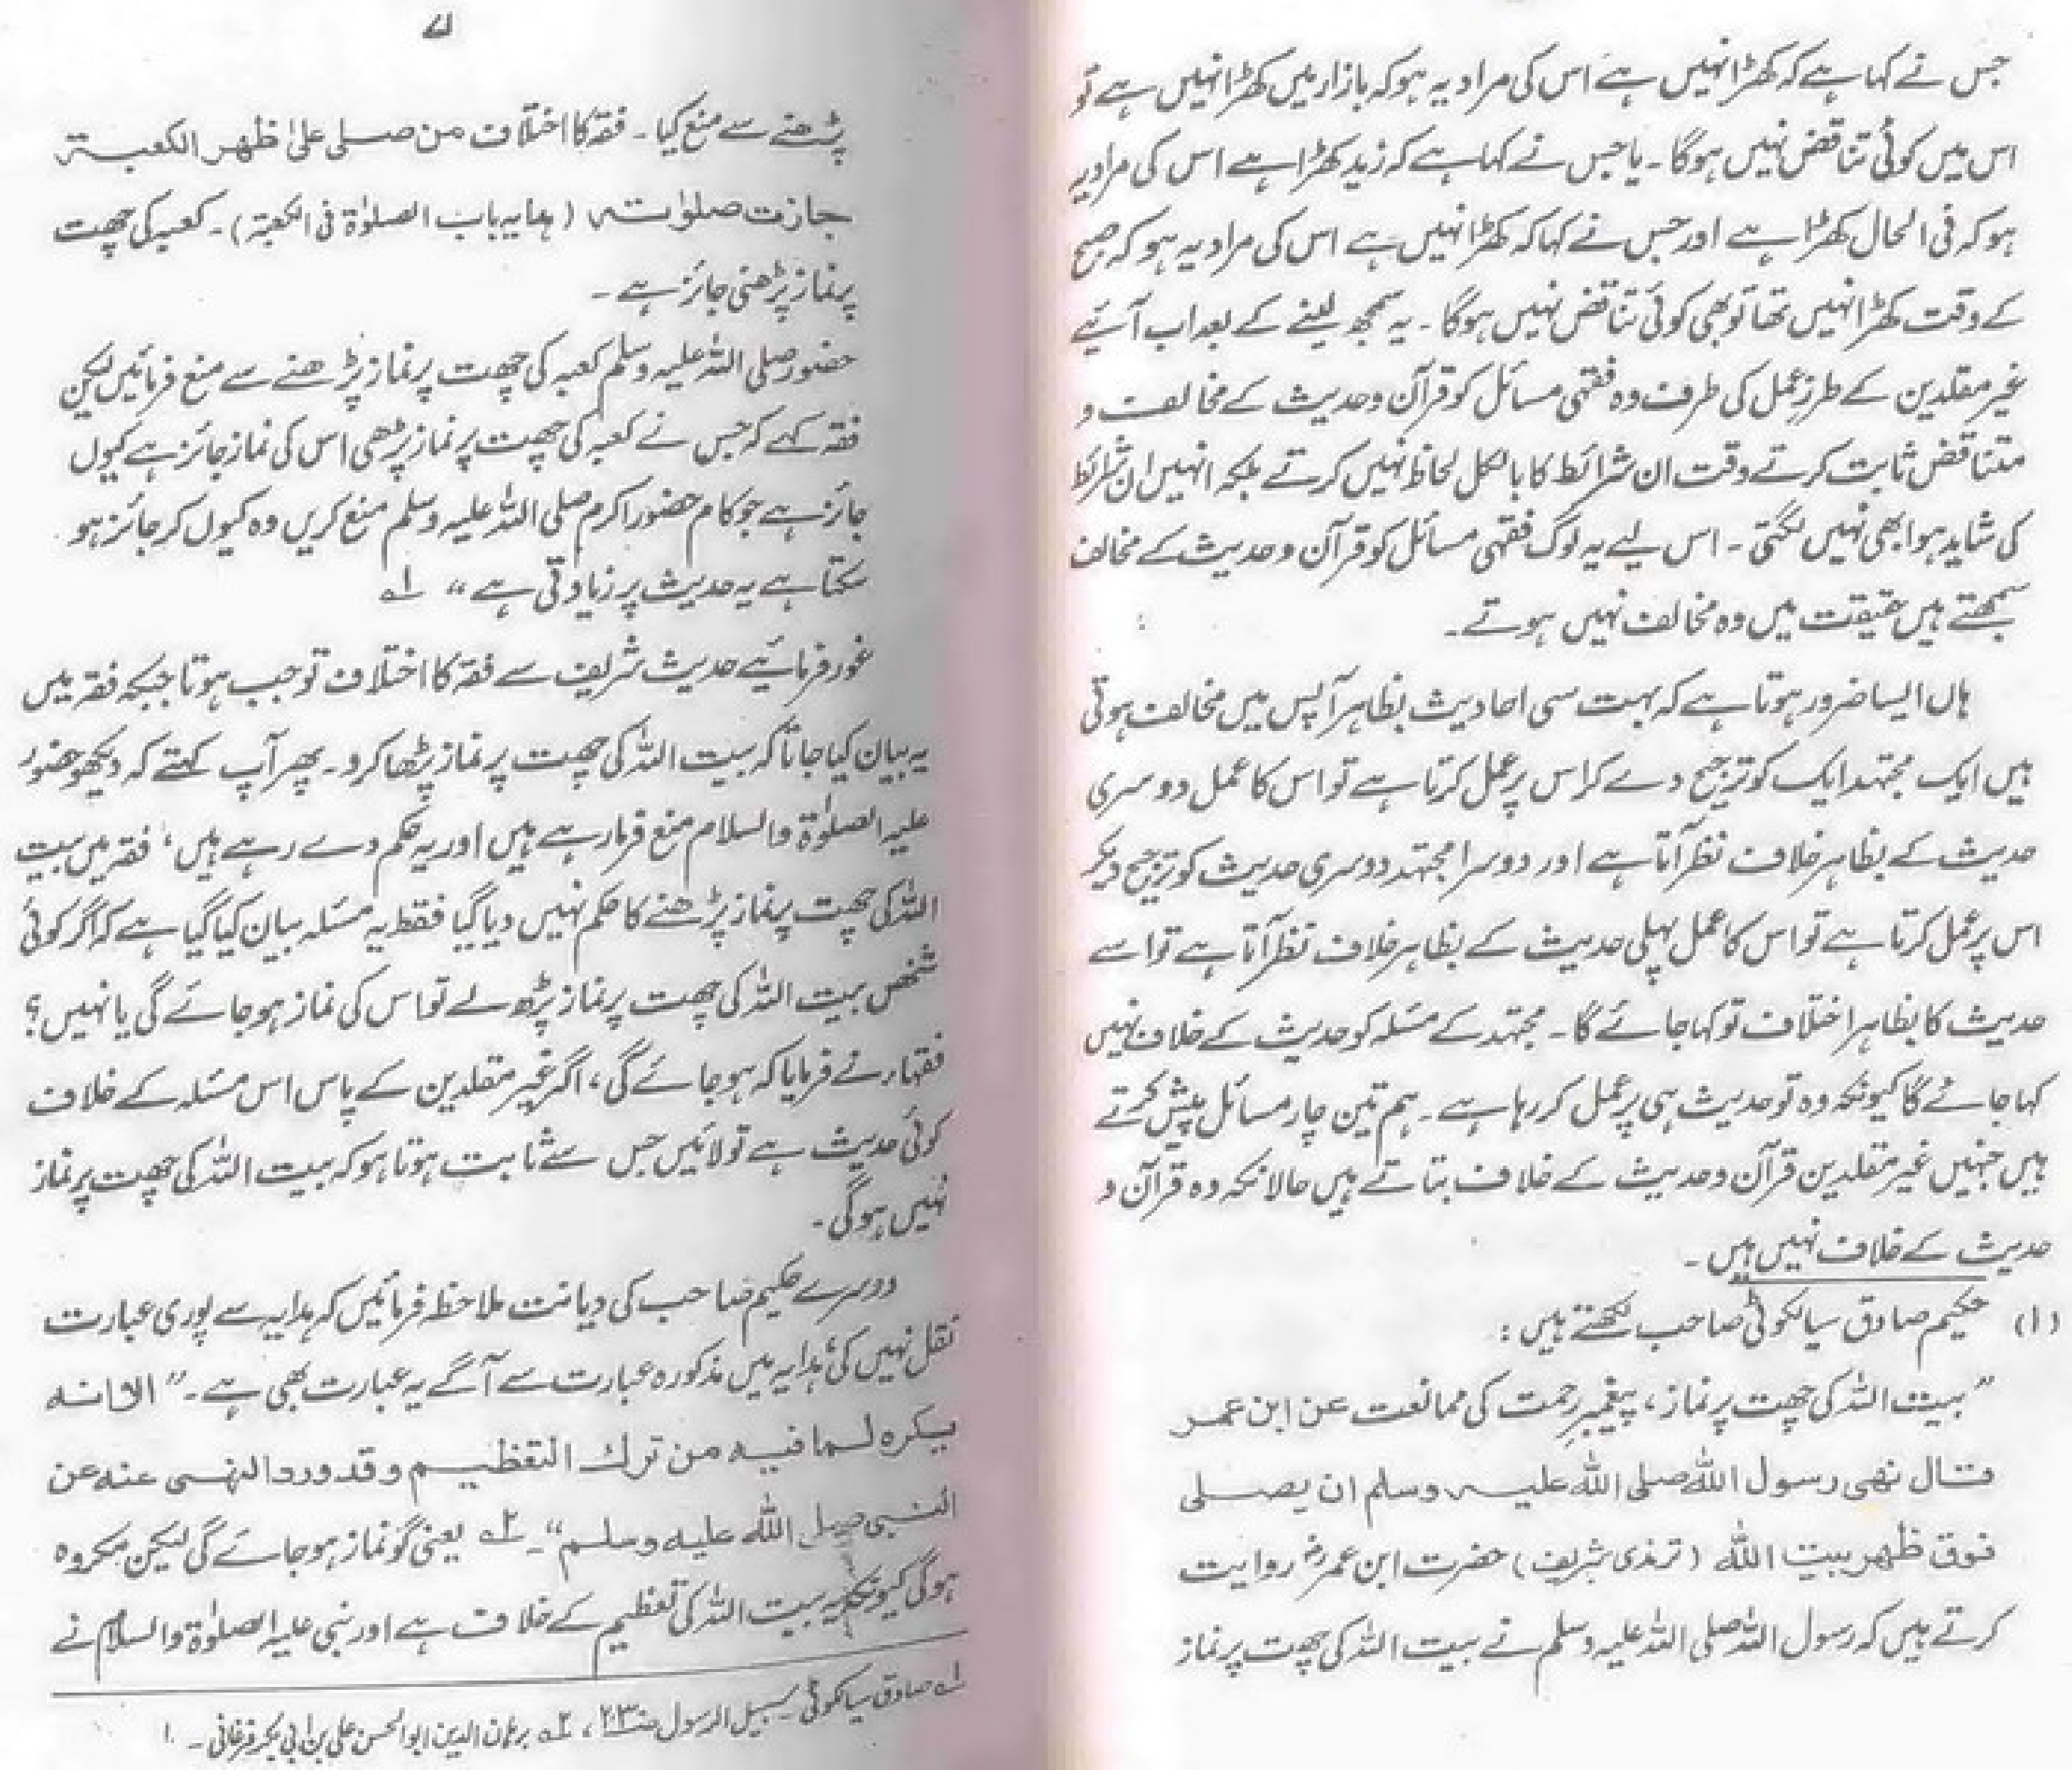 جس نے کہا ہے کہ کھڑا نہیں ہے اس کی مراد یہ ہو کہ بازار میں کھڑا نہیں ہے تو
اس میں کوئی تناقض نہیں ہوگا۔ یا جس نے کہا ہے کہ زید کھڑا ہے اس کی مراد یہ
ہو کہ فی الحال کھڑا ہے اور جس نے کہا کہ کھڑا نہیں ہے اس کی مراد یہ ہو کہ صبح
کے وقت کھڑا نہیں تھا تو بھی کوئی تناقض نہیں ہوگا۔ یہ سمجھ لینے کے بعد اب آئیے
غیر مقلدین کے طرزِ عمل کی طرف وہ فقہی مسائل کو قرآن و حدیث کے مخالف و
متناقض ثابت کرتے وقت ان شرائط کا بالکل لحاظ نہیں کرتے بلکہ انہیں ان شرائط
کی شاید ہوا بھی نہیں لگتی۔ اس لیے یہ لوگ فقہی مسائل کو قرآن و حدیث کے مخالف
سمجھتے ہیں حقیقت میں وہ مخالف نہیں ہوتے۔
ہاں ایسا ضرور ہوتا ہے کہ بہت سی احادیث بظاہر آپس میں مخالف ہوتی
ہیں ایک مجتہد ایک کو ترجیح دے کر اس پر عمل کرتا ہے تو اس کا عمل دوسری
حدیث کے بظاہر خلاف نظر آتا ہے اور دوسرا مجتہد دوسری حدیث کو ترجیح دیکر
اس پر عمل کرتا ہے تو اس کا عمل پہلی حدیث کے بظاہر خلاف نظر آتا ہے تو اسے
حدیث کا بظاہر اختلاف تو کہا جائے گا۔ مجتہد کے مسئلہ کو حدیث کے خلاف نہیں
کہا جائے گا کیونکہ وہ تو حدیث ہی پر عمل کر رہا ہے۔ ہم تین چار مسائل پیش کرتے
ہیں جنہیں غیر مقلدین قرآن و حدیث کے خلاف بتاتے ہیں حالانکہ وہ قرآن و
حدیث کے خلاف نہیں ہیں۔
(۱) حکیم صادق سیالکوٹی صاحب لکھتے ہیں :
”بیت اللہ کی چھت پر نماز، پیغمبرِ رحمت کی ممانعت عن ابن عمر
قال نهى رسول الله صلى الله عليه وسلم ان يصلى
فوق ظهر بيت الله (ترمذی شریف) حضرت ابن عمرؓ روایت
کرتے ہیں کہ رسول اللہ صلی اللہ علیہ وسلم نے بیت اللہ کی چھت پر نماز
۷
پڑھنے سے منع کیا۔ فقہ کا اختلاف من صلى على ظهر الكعبة
جازت صلوٰته (ہدایہ باب الصلوٰۃ فی الکعبۃ)۔ کعبہ کی چھت
پر نماز پڑھنی جائز ہے۔
حضور صلی اللہ علیہ وسلم کعبہ کی چھت پر نماز پڑھنے سے منع فرمائیں لیکن
فقہ کہے کہ جس نے کعبہ کی چھت پر نماز پڑھی اس کی نماز جائز ہے کیوں
جائز ہے جو کام حضور اکرم صلی اللہ علیہ وسلم منع کریں وہ کیوں کر جائز ہو
سکتا ہے یہ حدیث پر زیادتی ہے“ ۱؎
غور فرمائیے حدیث شریف سے فقہ کا اختلاف تو جب ہوتا جبکہ فقہ میں
یہ بیان کیا جاتا کہ بیت اللہ کی چھت پر نماز پڑھا کرو۔ پھر آپ کہتے کہ دیکھو حضور
علیہ الصلوٰۃ والسلام منع فرما رہے ہیں اور یہ حکم دے رہے ہیں، فقہ میں بیت
اللہ کی چھت پر نماز پڑھنے کا حکم نہیں دیا گیا فقط یہ مسئلہ بیان کیا گیا ہے کہ اگر کوئی
شخص بیت اللہ کی چھت پر نماز پڑھ لے تو اس کی نماز ہو جائے گی یا نہیں؟
فقہاء نے فرمایا کہ ہو جائے گی، اگر غیر مقلدین کے پاس اس مسئلہ کے خلاف
کوئی حدیث ہے تو لائیں جس سے ثابت ہوتا ہو کہ بیت اللہ کی چھت پر نماز
نہیں ہوگی۔
دوسرے حکیم صاحب کی دیانت ملاحظہ فرمائیں کہ ہدایہ سے پوری عبارت
نقل نہیں کی، ہدایہ میں مذکورہ عبارت سے آگے یہ عبارت بھی ہے۔ ”الا انه
يكره لما فيه من ترك التعظيم وقد ورد النهى عنه عن
النبى صلى الله عليه وسلم“۔ ۲؎ یعنی گو نماز ہو جائے گی لیکن مکروہ
ہوگی کیونکہ یہ بیت اللہ کی تعظیم کے خلاف ہے اور نبی علیہ الصلوٰۃ والسلام نے
۱؎ صادق سیالکوٹی۔ سبیل الرسول ص۲۳۰، ۲؎ برہان الدین ابوالحسن علی بن ابی بکر فرغانی۔